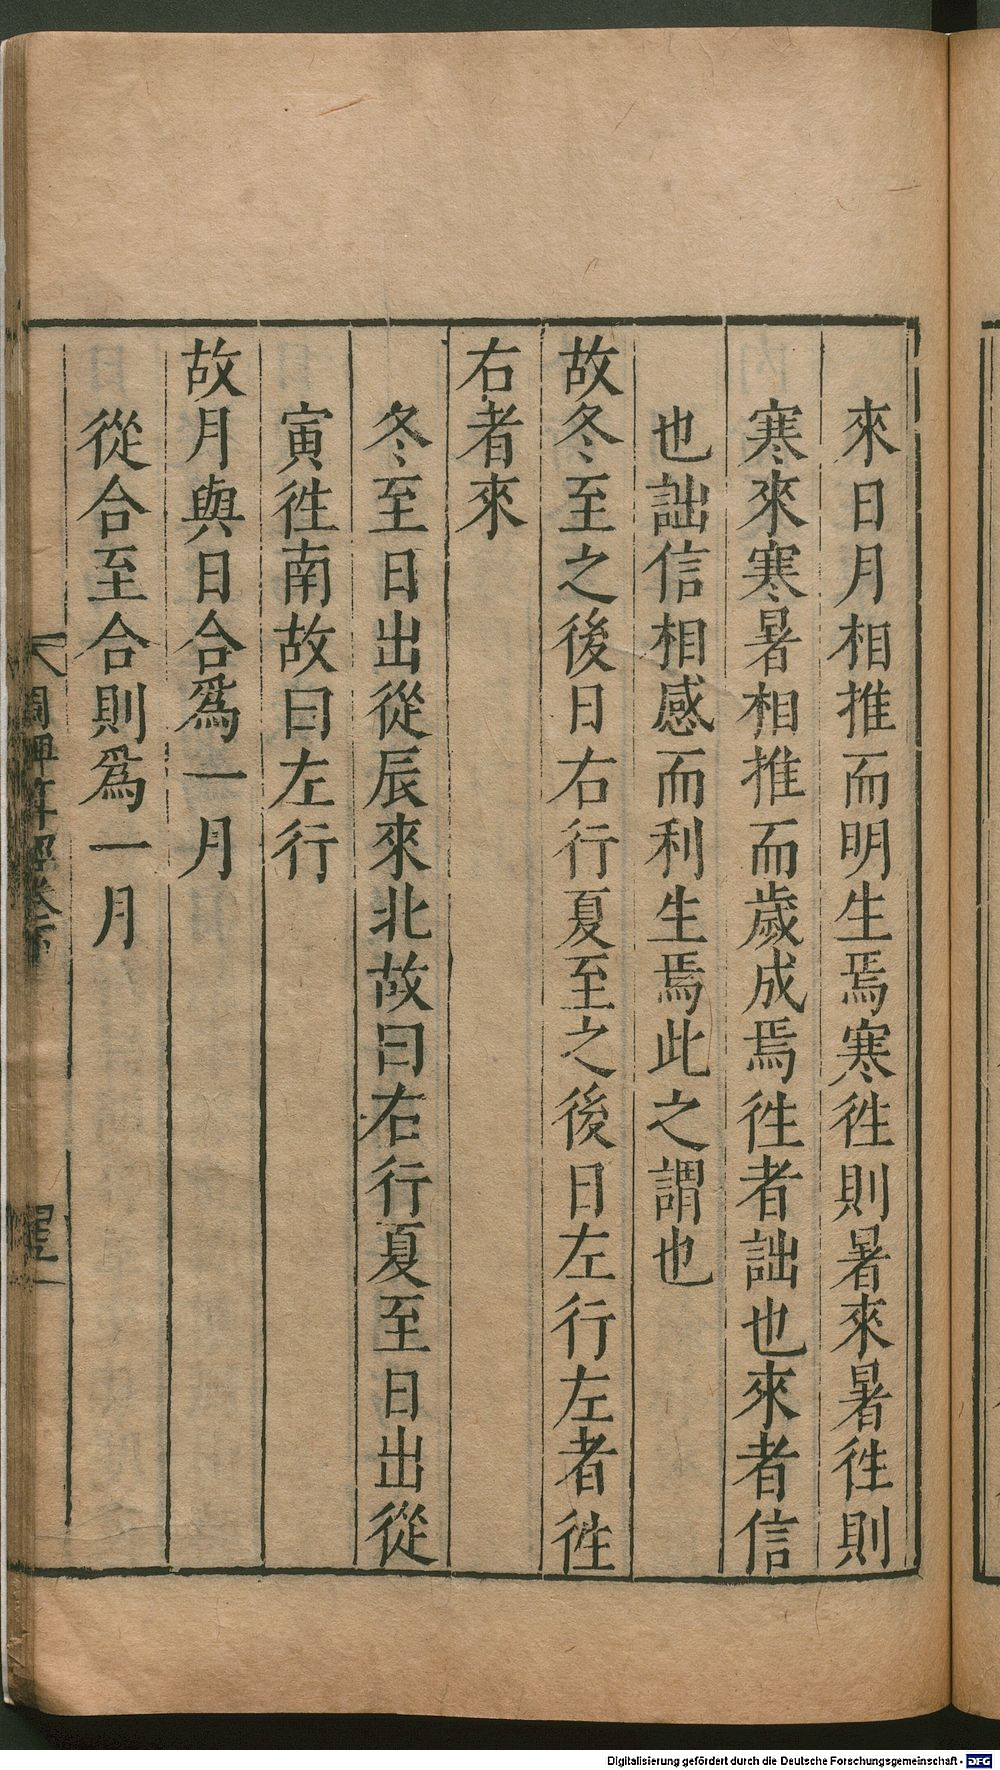 來日月相推而明生焉寒徃則暑來暑徃則
寒來寒暑相推而歲成焉徃者詘也來者信
也詘信相感而利生焉此之謂也
故冬至之後日右行夏至之後日左行左者徃
右者來
冬至日出從辰來北故曰右行夏至日出從
寅徃南故曰左行
故月與日合爲一月
從合至合則爲一月
周髀算經卷下
Digitalisierung gefördert durch die Deutsche Forschungsgemeinschaft - DFG